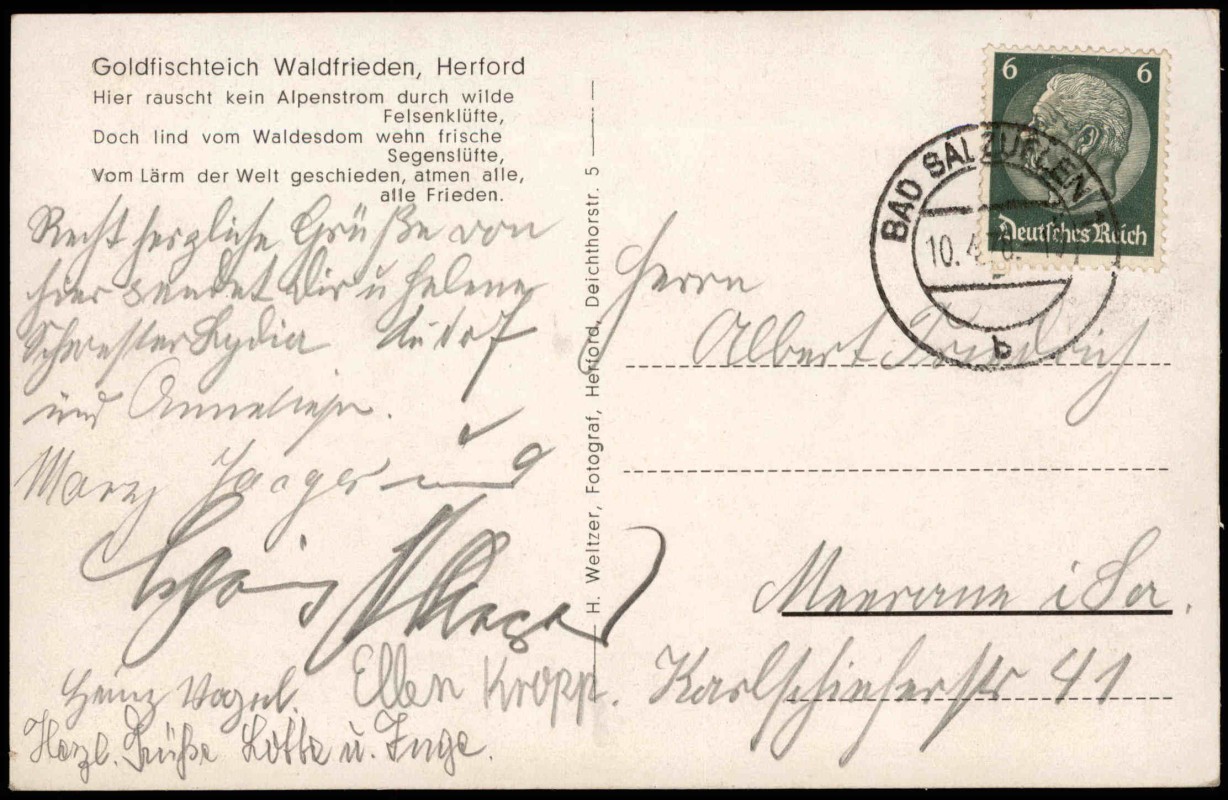 Goldfischteich Waldfrieden, Herford
Hier rauscht kein Alpenstrom durch wilde
Felsenklüfte,
Doch lind vom Waldesdom wehn frische
Segenslüfte,
Vom Lärm der Welt geschieden, atmen alle,
alle Frieden.
Recht herzliche Grüße von
hier sendet Dir u Helene
Schwester Lydia Rudolf
und Anneliese.
Mary Jaeger und
Heinz Vogel. Ellen Kropp.
Herzl. Grüße Lotte u. Inge.
H. Weltzer, Fotograf, Herford, Deichthorstr. 5
6 6
Deutsches Reich
BAD SALZUFLEN 1
10. 
b
Herrn
Albert Friedrich
Meerane i Sa.
41